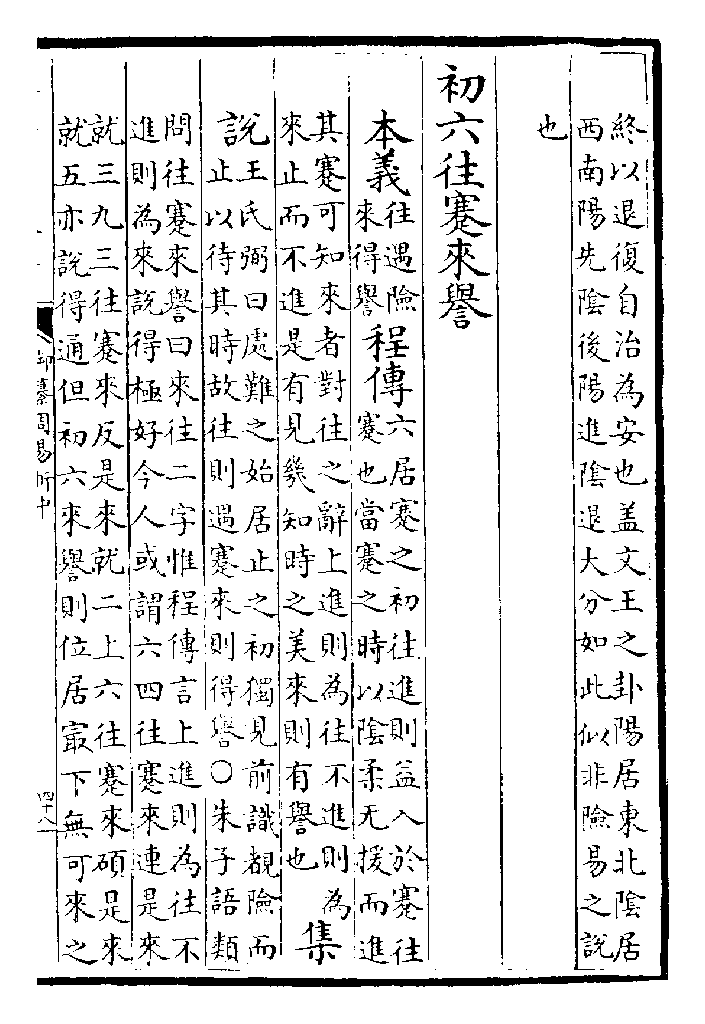 終以退復自治為安也盖文王之卦陽居東北陰居
西南陽先陰後陽進陰退大分如此似非險易之説
也
初六往蹇來譽
本義往遇險來得譽程傳六居蹇之初往進則益入於蹇往
蹇也當蹇之時以陰柔无援而進
其蹇可知來者對往之辭上進則為往不進則為
來止而不進是有見幾知時之美來則有譽也集
説王氏弼曰處難之始居止之初獨見前識覩險而
止以待其時故往則遇蹇來則得譽○朱子語類
問往蹇來譽曰來往二字惟程傳言上進則為往不
進則為來説得極好今人或謂六四往蹇來連是來
就三九三往蹇來反是來就二上六往蹇來碩是來
就五亦説得通但初六來譽則位居㝡下無可來之
御纂周易折中
四十八